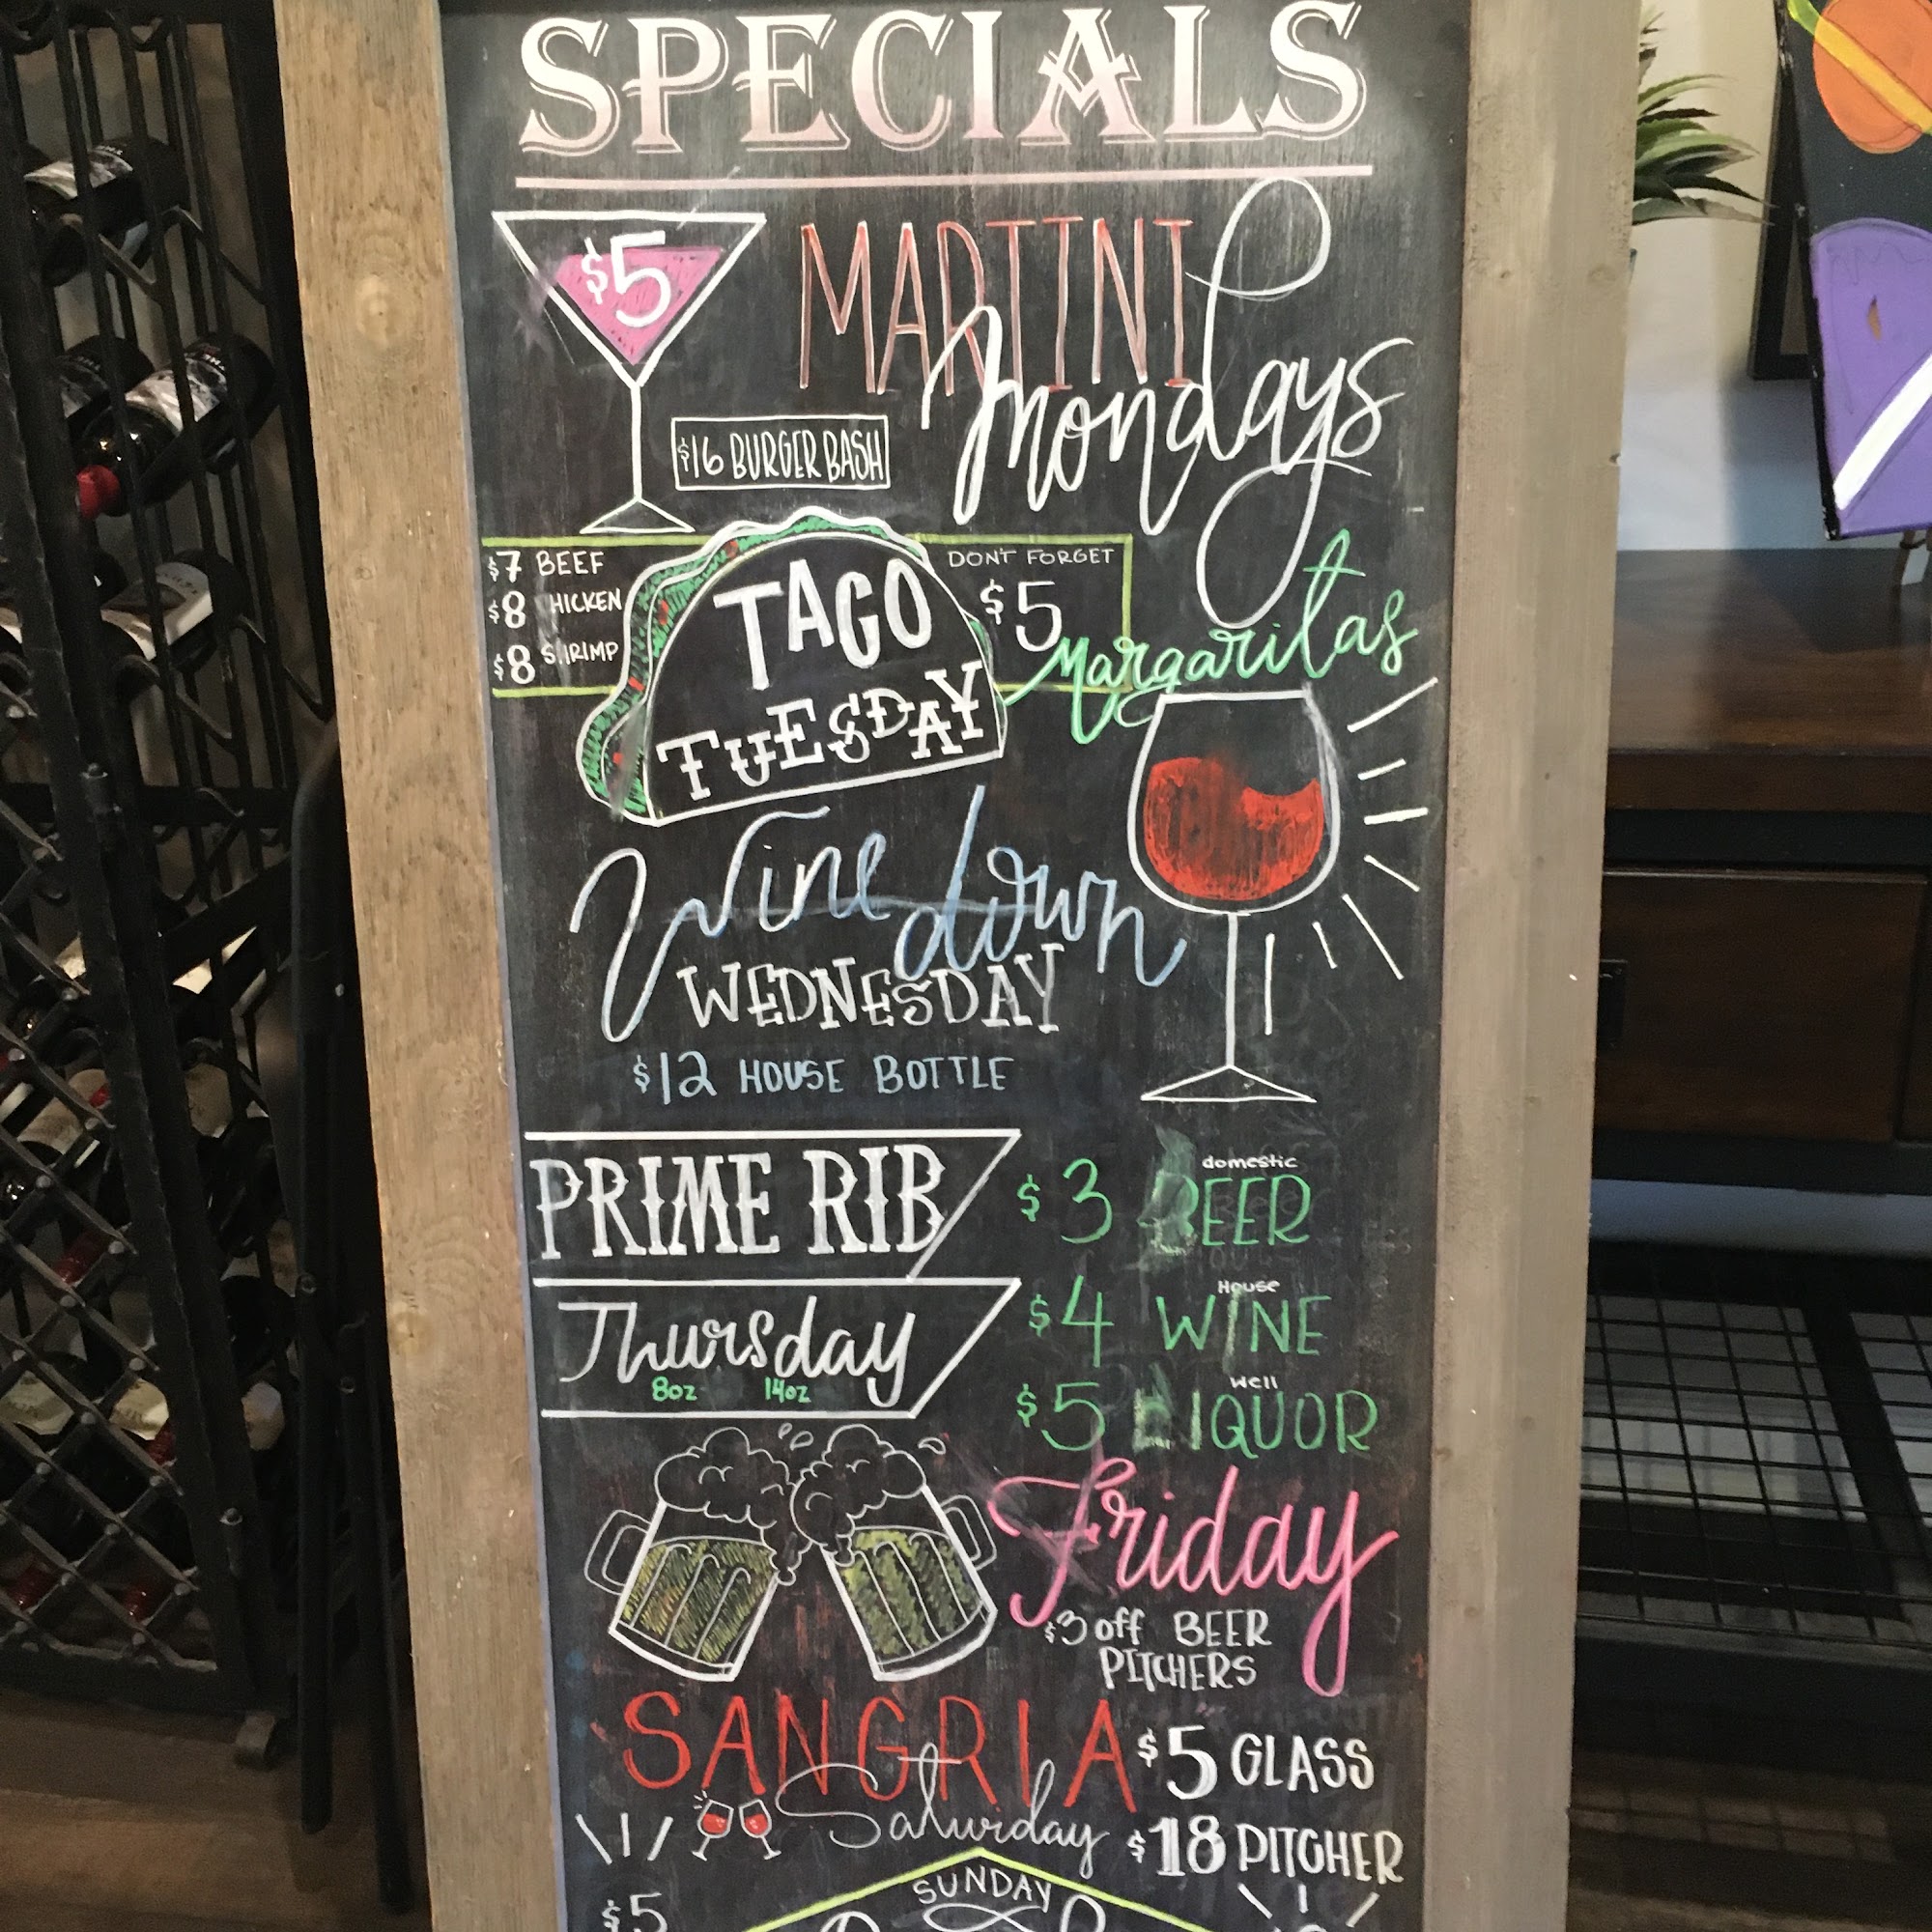 SPECIALS
$5
MARTINI
Mondays
$16 BURGER BASH
$7 BEEF
$8 HICKEN
$8 SHRIMP
TACO
TUESDAY
DON'T FORGET
$5
Margaritas
Wine down
WEDNESDAY
$12 HOUSE BOTTLE
PRIME RIB
Thursday
8oz 14oz
domestic
$3 BEER
House
$4 WINE
Well
$5 LIQUOR
Friday
$3 off BEER
PITCHERS
SANGRIA
Saturday
$5 GLASS
$18 PITCHER
SUNDAY
$5